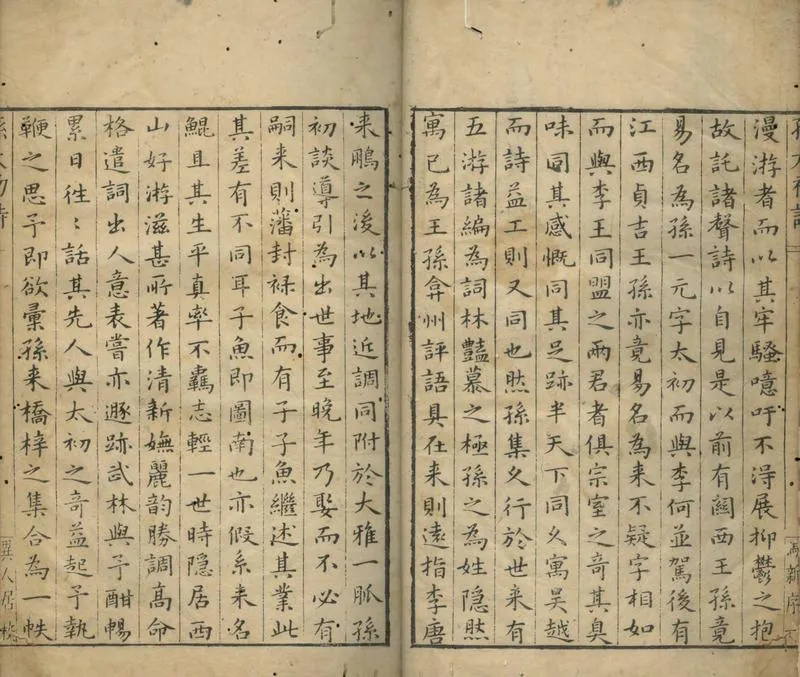 漫游者而以其牢騷噫吁不淂展抑鬱之抱
故託諸聲詩以自見是以前有關西王孫竟
易名為孫一元字太初而與李何並駕後有
江西貞吉王孫亦竟易名為来不疑字相如
而與李王同盟之兩君者俱宗室之奇其臭
味同其感慨同其足跡半天下同乆寓吳越
而詩益工則又同也㷊孫集乆行於世来有
五游諸編為詞林豔慕之極孫之為姓隠㷊
寓已為王孫弇州評語具在来則遠指李唐
来鵬之後以其地近調同附於大雅一脈孫
初談導引為出世事至晚年乃娶而不必有
嗣来則藩封祿食而有子子魚繼述其業此
其差有不同耳子魚即圖南也亦假系来名
鯤且其生平真率不羈志輕一世時隠居西
山好游滋甚所著作清新嫵麗韵勝調髙命
格遣詞出人意表嘗亦遯跡武林與予酣暢
累日徃〻話其先人與太初之奇益起予執
鞭之思予即欲彙孫来橋梓之集合為一帙